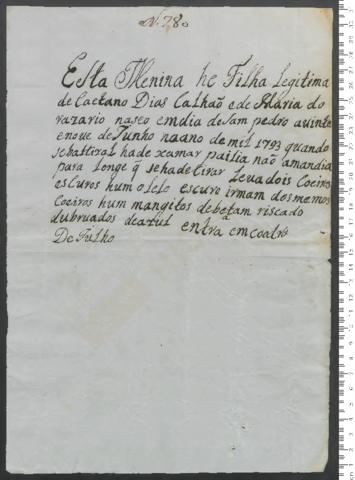 N. 780
Esta Menina he Filha legitima
de Caetano Dias Calhaõ e de Maria do
razario naseo em dia de Sam pedro a vinte
e nove de Junho na ano de mil 1793 quando
se bastizal ha de xamar não a mandia
para longe q se ha de tirar Leva dois Coeiros
esCuros hum o lelo escuro irmam dos memos
Coeiros hum mangitos de betam riscado
dubruados de azul entra em coatro
De Julho